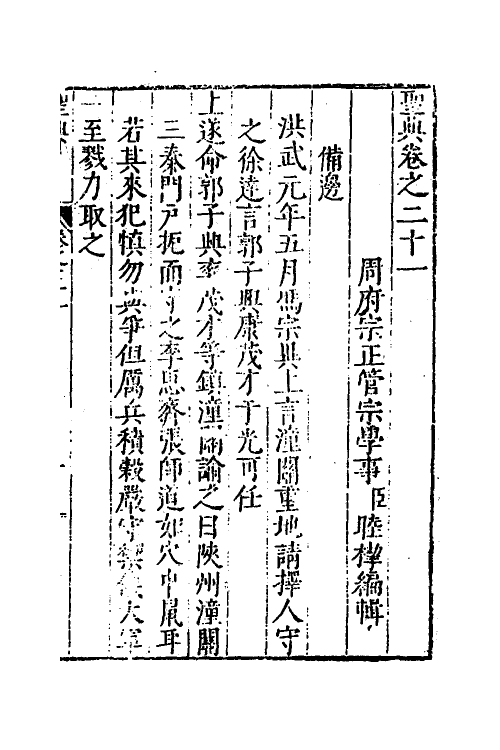 聖典卷之二十一
周府宗正管宗學事臣睦㮮編輯
備邊
洪武元年五月馮宗異上言潼關重地請擇人守
之徐達言郭子興康茂才于光可任
上遂命郭子興李茂才等鎮潼關諭之曰陝州潼關
三秦門戶扼而守之李思齊張師道如穴中鼠耳
若其來犯慎勿與爭但厲兵積穀嚴守大軍
一至戮力取之
聖典